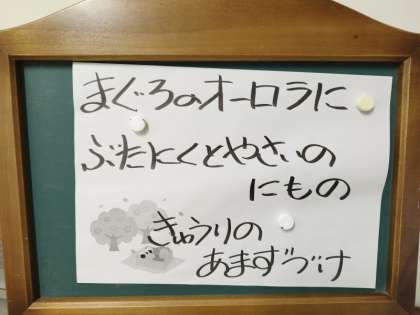 まぐろのオーロラに
ぶたにくとやさいの
にもの
きゅうりの
あまずづけ